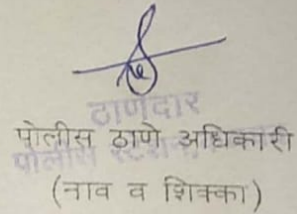 ठाणेदार
पोलीस ठाणे अधिकारी
पोलीस
(नाव व शिक्का)